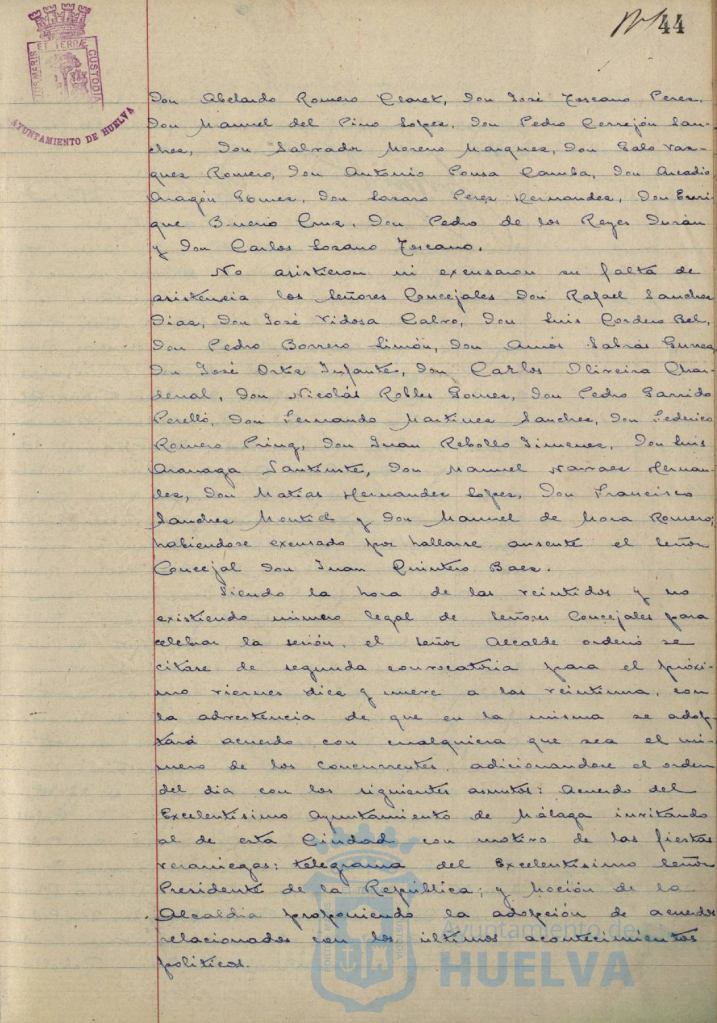 44
PORTUS MARIS ET TERRAE CUSTODIA
AYUNTAMIENTO DE HUELVA
Don Abelardo Romero Claret, Don José Toscano Perez,
Don Manuel del Pino Lopez, Don Pedro Cerrejón San-
chez, Don Salvador Moreno Marquez, Don Galo Vaz-
quez Romero, Don Antonio Pousa Camba, Don Arcadio
Aragón Gomez, Don Lazaro Perez Hernandez, Don Enri-
que Bueno Cruz, Don Pedro de los Reyes Durán
y Don Carlos Lozano Toscano.
No asistieron ni excusaron su falta de
asistencia los Señores Concejales Don Rafael Sanchez
Diaz, Don José Vidosa Calvo, Don Luis Cordero Bel,
Don Pedro Borrero Limón, Don Amós Sabrás Gurrea,
Don José Orta Infante, Don Carlos Oliveira Char-
denal, Don Nicolás Robles Gomez, Don Pedro Garrido
Perelló, Don Fernando Martinez Sanchez, Don Federico
Romero Pring, Don Juan Rebollo Jimenez, Don Luis
Aranaga Don Manuel Narvaez Hernan-
dez, Don Matías Hernandez Lopez, Don Francisco
Sanchez y Don Manuel de Mora Romero;
habiendose excusado por hallarse ausente el Señor
Concejal Don Juan Quintero Baez.
Siendo la hora de las veintidos y no
existiendo número legal de Señores Concejales para
celebrar la sesión, el Señor Alcalde ordenó se
citase de segunda convocatoria para el próxi-
mo viernes diez y nueve a las veintiuna, con
la advertencia de que en la misma se adop-
tará acuerdo con cualquiera que sea el nú-
mero de los concurrentes, adicionandose el orden
del dia con los siguientes asuntos: Acuerdo del
Excelentísimo Ayuntamiento de Málaga invitando
al de esta Ciudad con motivo de las fiestas
veraniegas; telegrama del Excelentísimo Señor
Presidente de la República; y Moción de la
Alcaldia proponiendo la adopción de acuerdos
relacionados con los últimos acontecimientos
políticos.
Ayuntamiento de
HUELVA